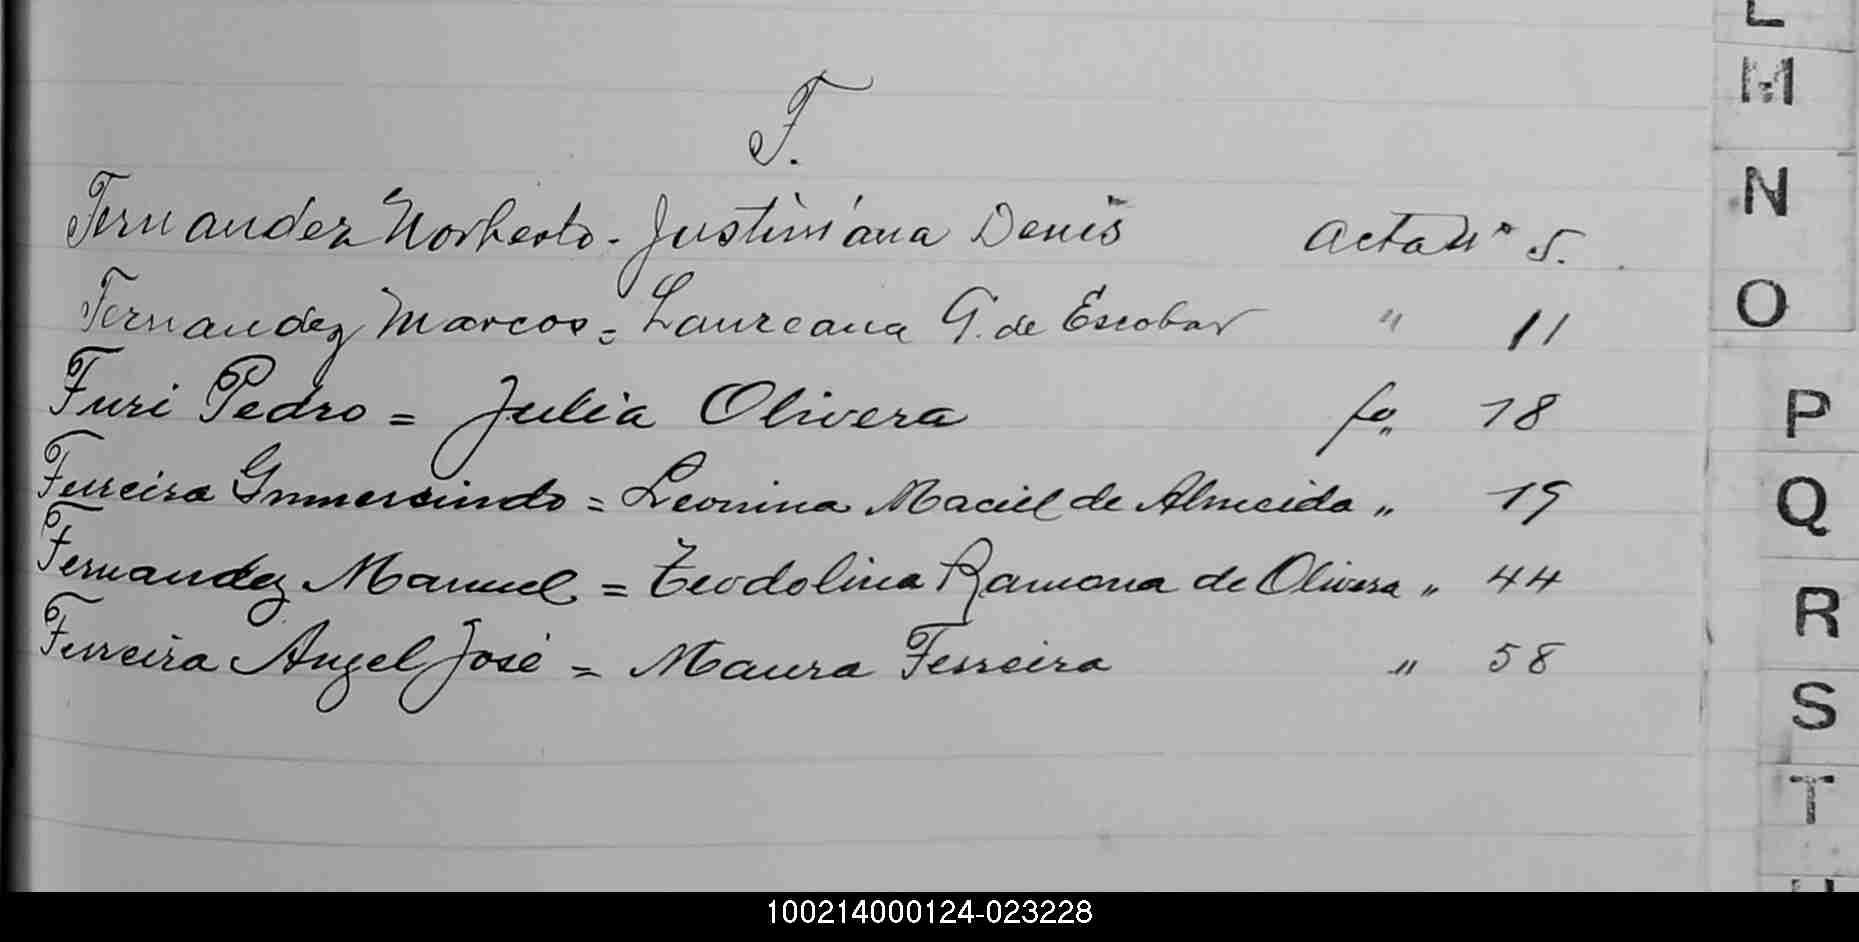 F.
Fernandez Norberto - Justiniana Denis Acta Nº 5.
Fernandez Marcos = Laureana G. de Escobar " 11
Furi Pedro = Julia Olivera fo,, 18
Ferreira Gumersindo = Leonina Maciel de Almeida " 19
Fernandez Manuel = Teodolina Ramona de Olivera " 44
Ferreira Angel José = Maura Ferreira " 58
L
M
N
O
P
Q
R
S
T
100214000124-023228